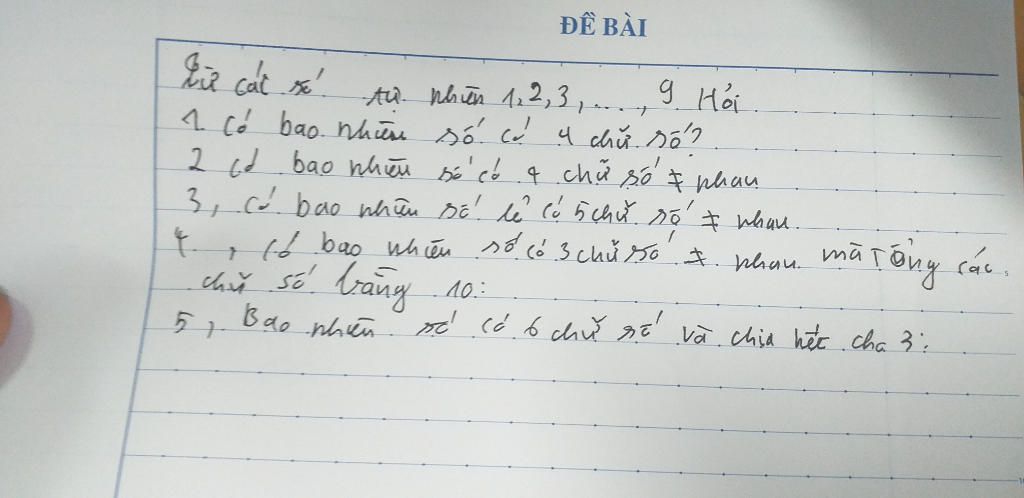 ĐỀ BÀI
Từ các số tự nhiên 1, 2, 3, ..., 9. Hỏi
1 Có bao nhiêu số có 4 chữ số?
2 có bao nhiêu số có 4 chữ số ≠ nhau
3, có bao nhiêu số lẻ có 5 chữ số ≠ nhau.
4., có bao nhiêu số có 3 chữ số ≠ nhau mà Tổng các
chữ số bằng 10:
5, Bao nhiêu số có 6 chữ số và chia hết cho 3: